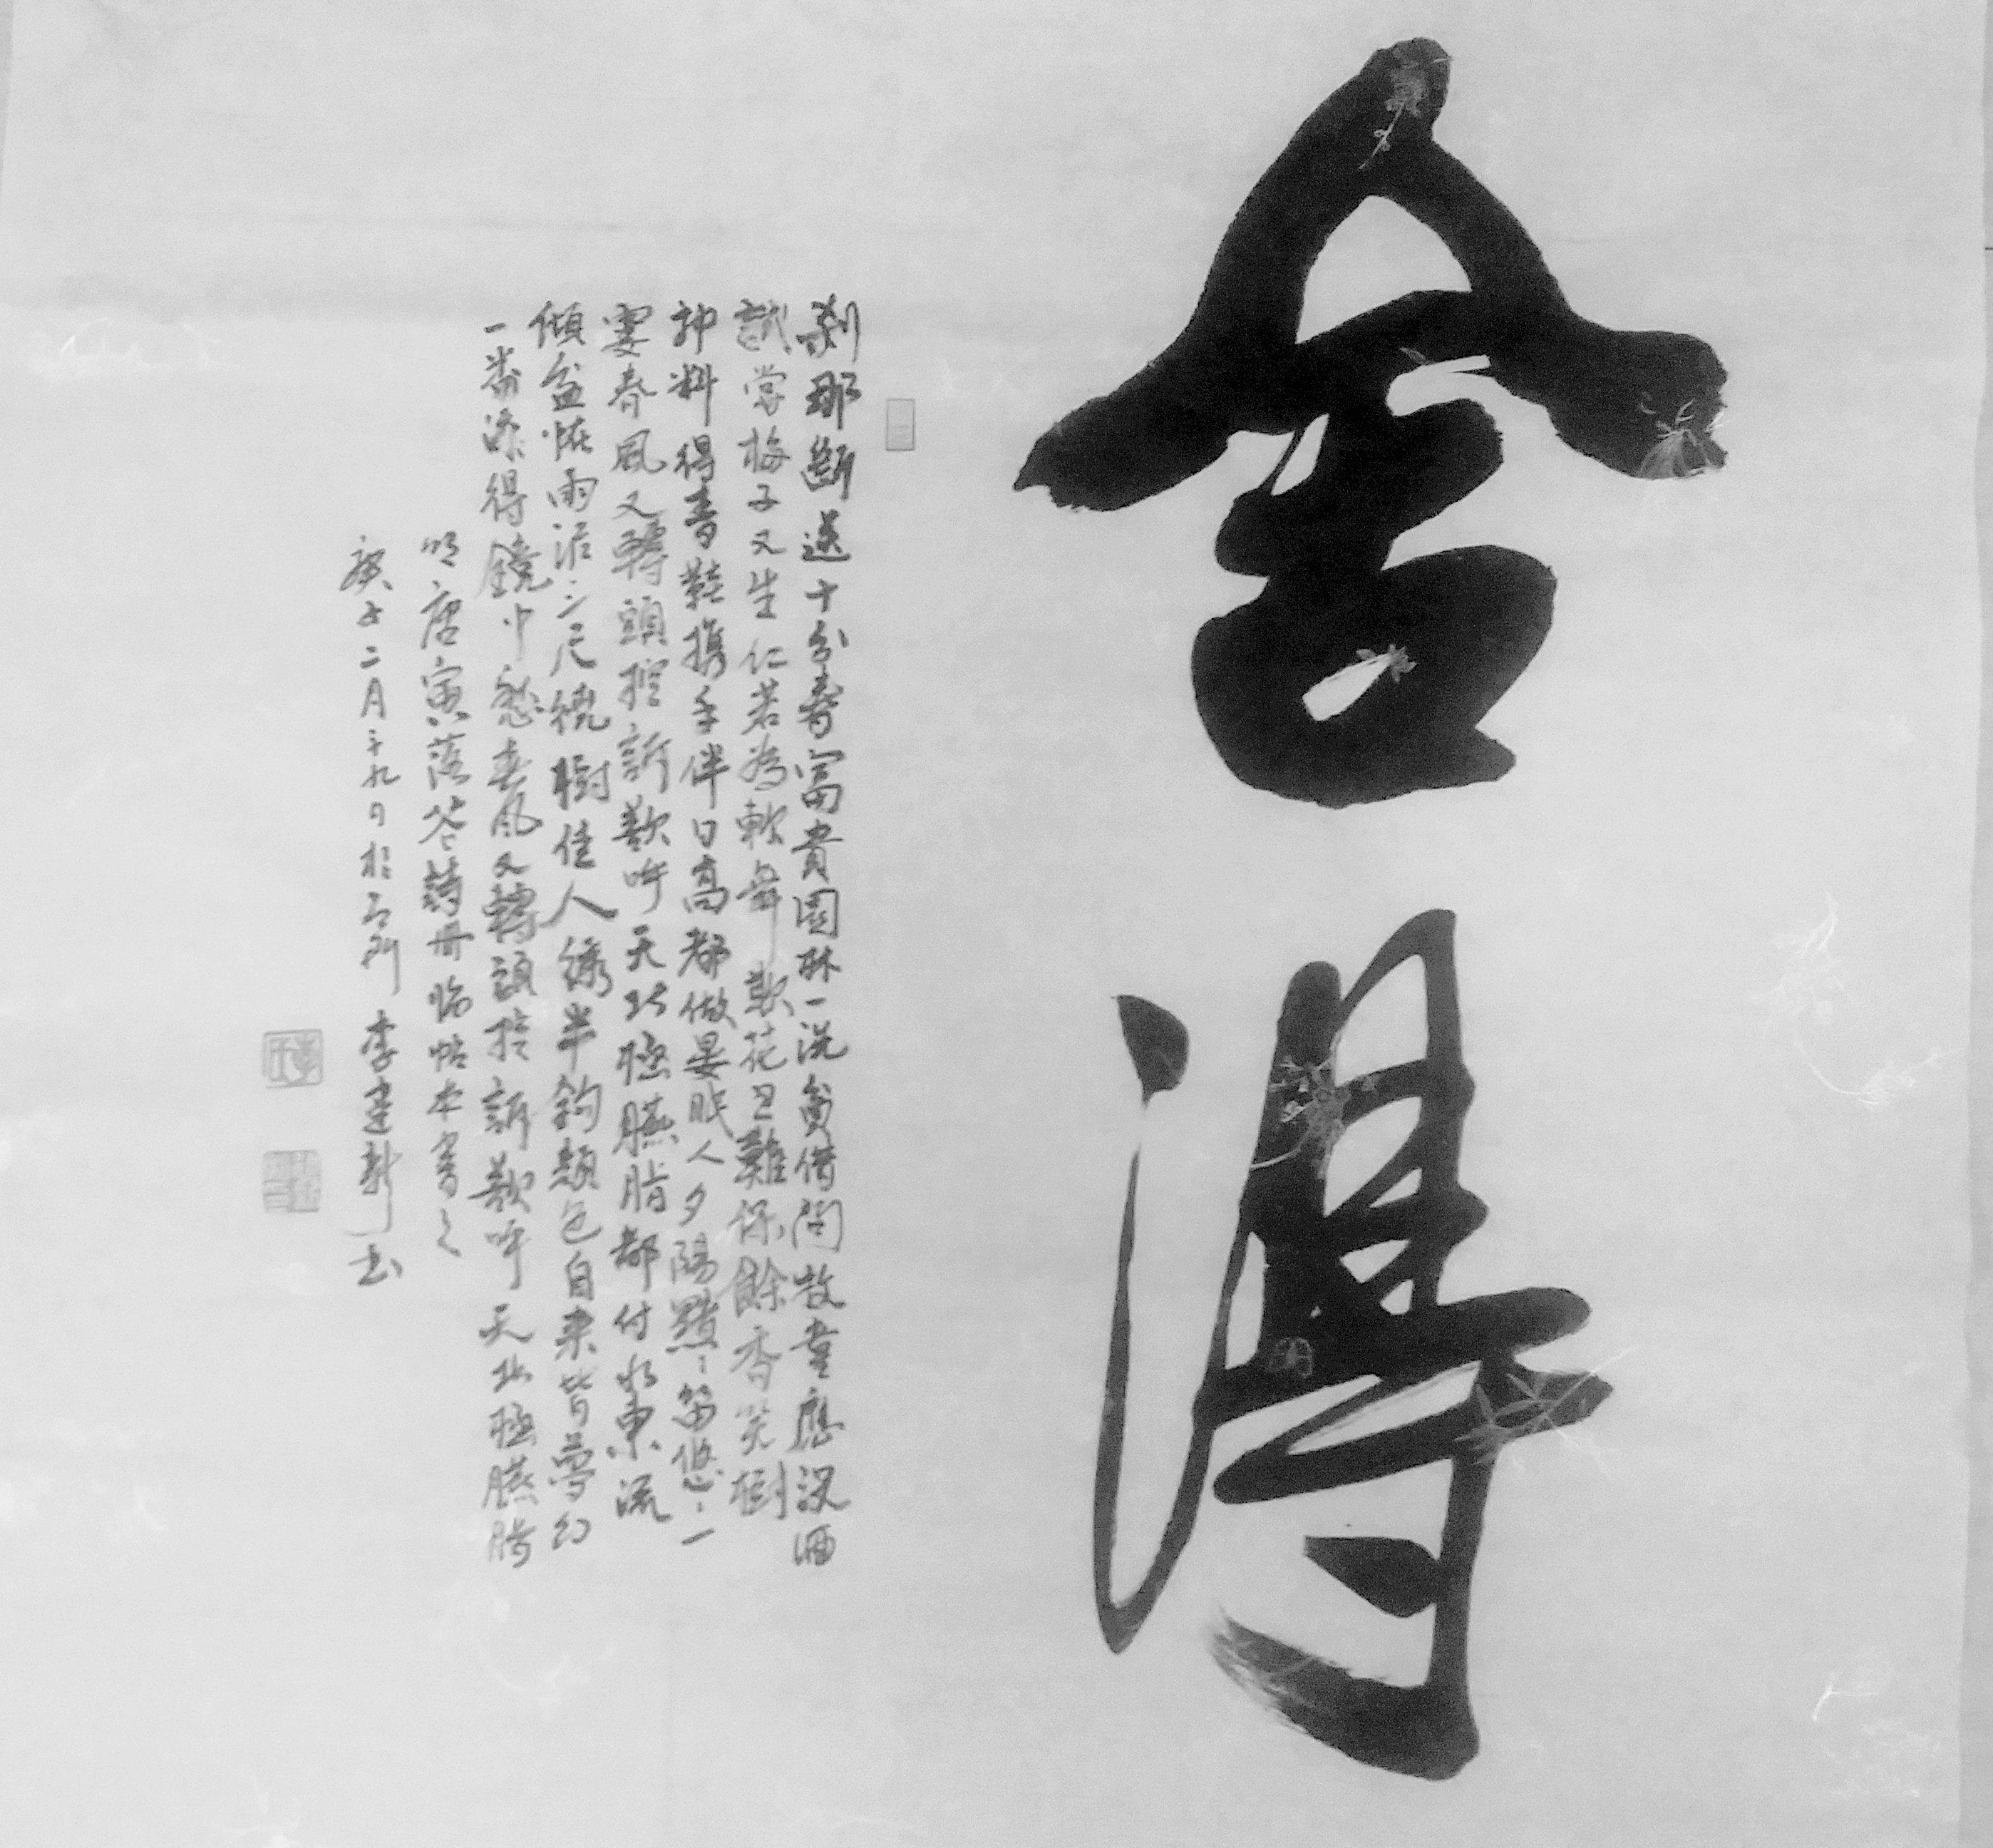 舍得
刹那斷送十分春富貴園林一洗貧借問牧童應沒酒
試嘗梅子又生仁若為軟舞欺花旦難保餘香笑樹
神料得青鞋攜手伴日高都做晏眠人夕陽黯:笛悠:一
霎春風又轉頭控訴欲呼天北極臙脂都付水東流
傾盆怪雨泥三尺繞樹佳人繡半鉤顏色自來皆夢幻
一番添得鏡中愁春風又轉頭控訴欲呼天北極臙脂
明唐寅落花詩冊臨帖本書之
庚子二月二十九日於 李建新书